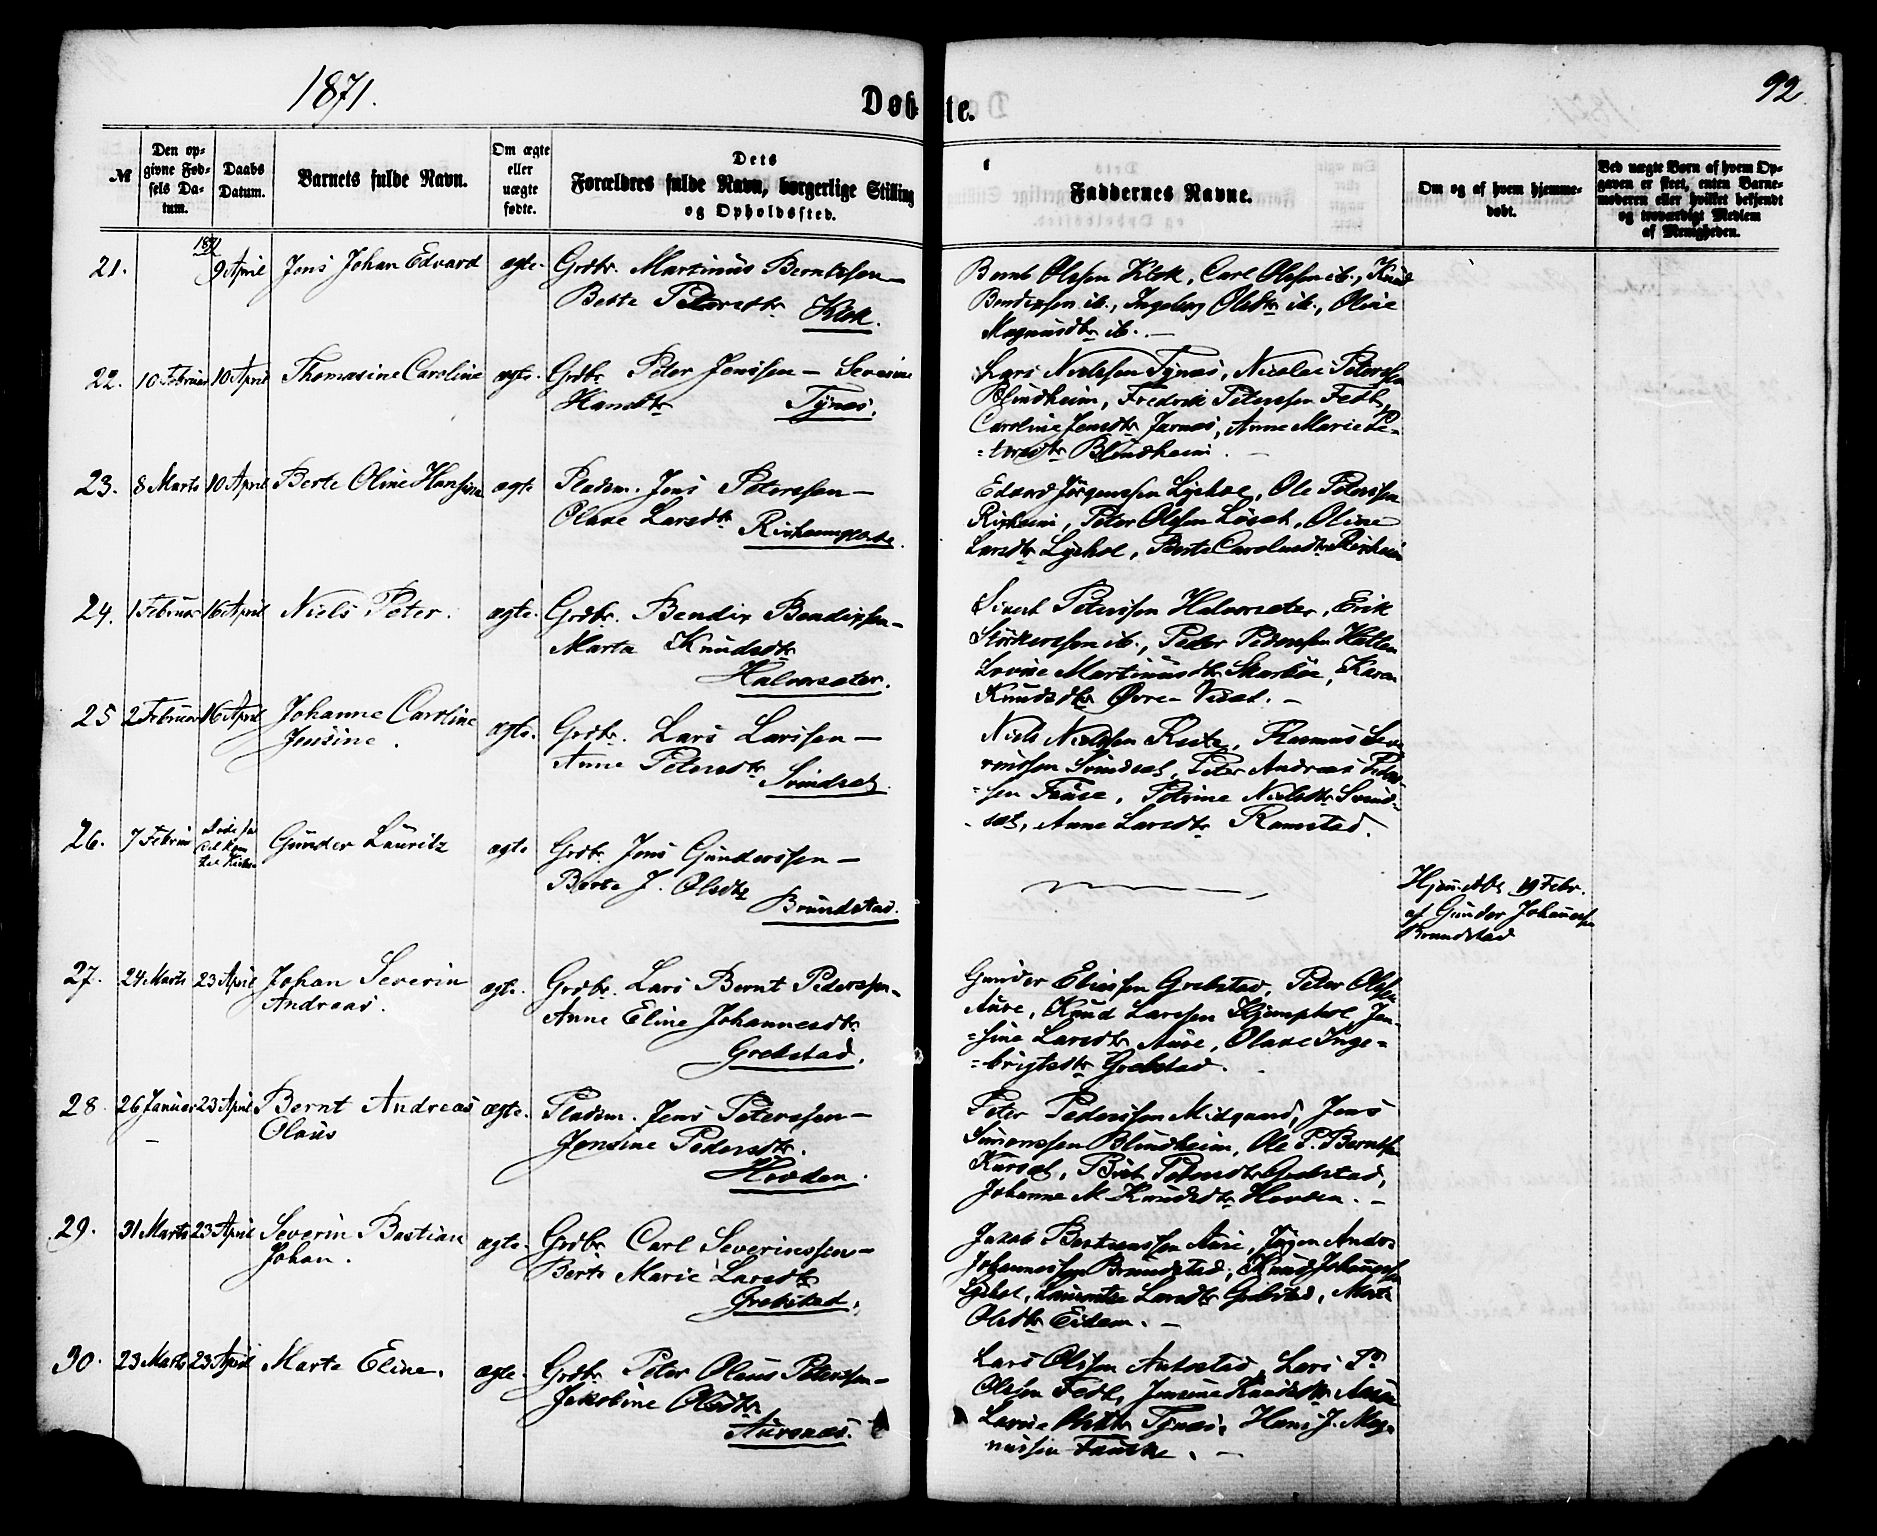 1871.
Døbte.
92
№
Den opgivne Fødsels Datum.
Daabs Datum.
Barnets fulde Navn.
Om ægte eller uægte fødte.
Dets Forældres fulde Navn, borgerlige Stilling og Opholdssted.
Faddernes Navne.
Om og af hvem hjemmedøbt.
Ved uægte Børn af hvem Opgaven er skeet, enten Barnemoderen eller hvilket bekjendt og troværdigt Medlem af Menigheden.
21.
1871
9 April
Jens Johan Edvard
ægte.
Grdbr. Martinus Berntssen —
Berte Petersdtr Klok.
Bernt Olssen Klok, Carl Olssen ib., Knud
Bendixsen ib., Ingeborg Olsdtr ib., Oline
Magnusdtr ib. —
22.
10 Februar
10 April
Thomasine Caroline
ægte.
Grdbr. Peter Jenssen — Severine
Hansdtr Tynæs.
Lars Nielssen Tynæs, Nicolai Peterssen
Blindheim, Fredrik Peterssen Fedt,
Caroline Jensdtr Jarnæs, Anne Marie Pe-
-tersdtr Blindheim. —
23.
8 Marts
10 April
Berte Oline Hansine
ægte
Pladsm. Jens Peterssen —
Olave Larsdtr Rixheimgjerde.
Edvard Jørgenssen Lyshol, Ole Peterssen
Rixheim, Peter Olssen Løset, Oline
Larsdtr Lyshol, Berte Carolusdtr Rixheim
24.
1 Februar
16 April
Niels Peter.
ægte.
Grdbr. Bendix Bendixsen —
Marta Knudsdtr
Halvorsæter.
Sivert Peterssen Halvorsæter, Erik
Størkerssen ib., Peter Pederssen Hatlen
Lovise Martinusdtr Skarbøe, Karen
Knudsdtr Øvre-Viset. —
25
2 Februar
16 April
Johanne Caroline
Jensine.
ægte.
Grdbr. Lars Larssen —
Anne Petersdtr Svindset.
Niels Nielssen Reite, Rasmus Seve
rinssen Svindset, Peter Andreas Peter
-sen Fause, Petrine Nielsdtr Svind-
-set, Anne Larsdtr Ramstad.
26.
7 Februar
Døde før
det kom
til Kirken
Gunder Lauritz
ægte
Grdbr. Jens Gunderssen —
Berte J. Olsdtr
Brundstad.
Hjemdøbt 19 Febr.
af Gunder Johanssen
Brundstad
27.
24 Marts
23 April
Johan Severin
Andreas.
ægte.
Grdbr. Lars Bernt Pederssen —
Anne Eline Johannesdtr
Grebstad.
Gunder Eliassen Grebstad, Peter Olssen
Aure, Knud Larssen Kjemphol, Jen-
-sine Larsdtr Aure, Olave Inge-
-brigtsdtr Grebstad.
28.
26 Januar
23 April
Bernt Andreas
Olaus
ægte.
Pladsm. Jens Peterssen —
Jensine Pedersdtr.
Hovden.
Peter Pederssen Midgaard, Jens
Simonssen Blindheim, Ole P. Berntsen
Kurset, Birt Petersdtr Grebstad,
Johanne M. Knudsdtr Hovden. —
29.
31 Marts
23 April
Severin Bastian
Johan.
ægte.
Grdbr. Carl Severinssen —
Berte Marie Larsdtr
Grebstad.
Jakob Bastianssen Aure, Jørgen Andr.
Johannessen Brundstad, Knud Johannessen
Lyshol, Laurentse Larsdtr Grebstad, Marte
Olsdtr Eidem. —
30.
23 Marts
23 April
Marte Eline.
ægte.
Grdbr. Peter Olaus Peterssen —
Jakobine Olsdtr
Aursnæs.
Lars Olssen Aurstad, Lars P.
Olssen Fedt, Jensine Knudsdtr
Lovise Olsdtr Tynæs, Hans J. Mag-
nussen Fauske. —